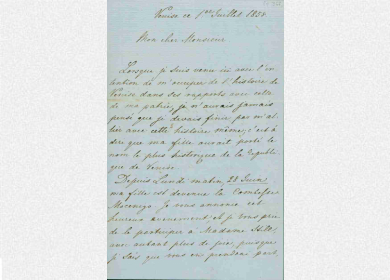 Venise ce 1er Juillet 1858
Mon cher Monsieur
Lorsque je suis venu ici avec l'in
tention de m'occuper de l'histoire de
Venise dans ses rapports avec celle
de ma patrie, je n'aurais jamais
pensé que je devais finir par m'al
lier avec cette histoire même, c'est à
dire que ma fille aurait porté le
nom le plus historique de la Républi
que de Venise.
Depuis Lundi matin 28 Juin
ma fille est devenue la Comtesse
Mocenigo. Je vous annonce cet
heureux évènement et je vous prie
de le participer à Madame
avec autant plus de joie, puisque
je sais que vous en prendrez part,